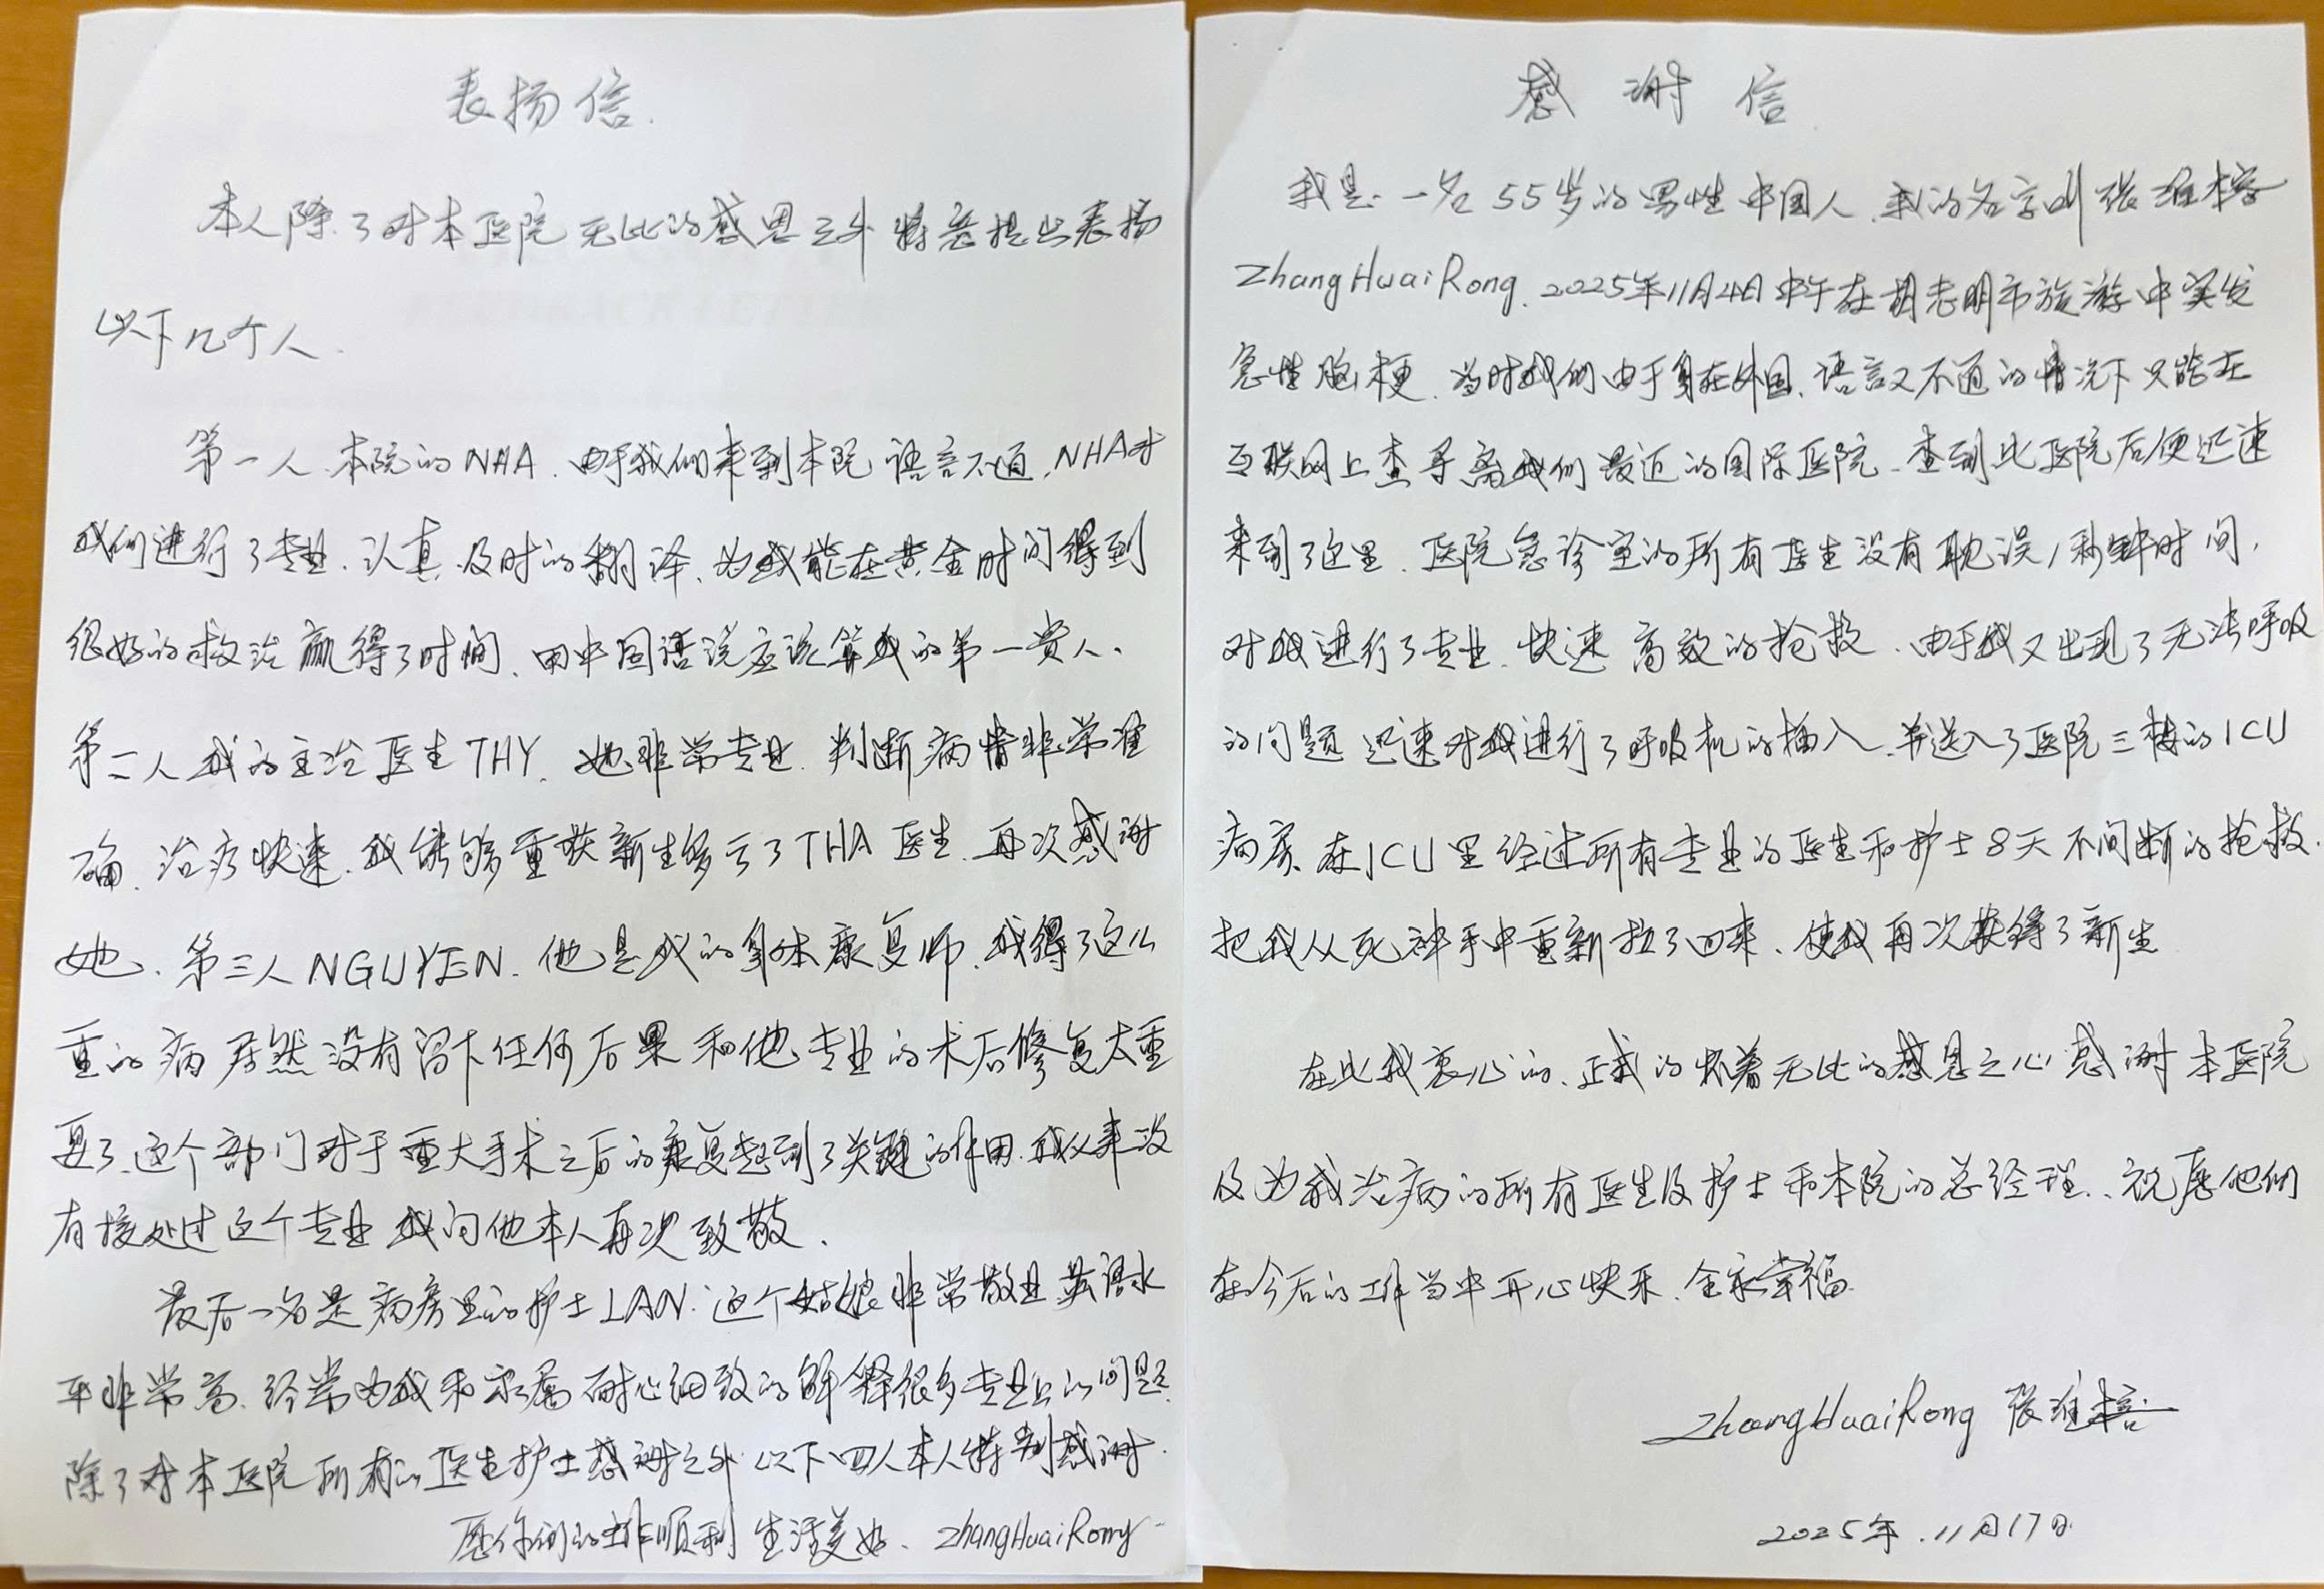 表扬信.
本人除了对本医院无比的感恩之外特意提出表扬
以下几个人.
第一人、本院的NHA. 由于我们来到本院语言不通、NHA对
我们进行了专业、认真、及时的翻译、为我能在黄金时间得到
很好的救治赢得了时间、用中国语说应该算我的第一贵人、
第二人我的主治医生THY. 她非常专业. 判断病情非常准
确、治疗快速、我能够重获新生多亏了THA医生. 再次感谢
她、第三人NGUYEN. 他是我的身体康复师、我得了这么
重的病居然没有留下任何后果和他专业的术后修复太重
要了、这个部门对于重大手术之后的康复起到了关键的作用. 我从来没
有接处过这个专业我向他本人再次致敬、
最后一名是病房里的护士LAN. 这个姑娘非常敬业英语水
平非常高. 经常为我和家属耐心细致的解释很多专业上的问题.
除了对本医院所有的医生护士感谢之外以下四人本人特别感谢.
愿你们的工作顺利生活美好、ZhangHuaiRong
感谢信.
我是一名55岁的男性中国人. 我的名字叫张淮榕
ZhangHuaiRong. 2025年11月4日中午在胡志明市旅游中突发
急性脑梗. 当时我们由于身在外国、语言又不通的情况下只能在
互联网上查寻离我们最近的国际医院、查到此医院后便迅速
来到了这里. 医院急诊室的所有医生没有耽误1秒钟时间,
对我进行了专业、快速高效的抢救、由于我又出现了无法呼吸
的问题迅速对我进行了呼吸机的插入、并送入了医院三楼的ICU
病房、在ICU里经过所有专业的医生和护士8天不间断的抢救.
把我从死神手中重新拉了回来、使我再次获得了新生
在此我衷心的、正式的怀着无比的感恩之心感谢本医院
及为我治病的所有医生及护士和本院的总经理、祝愿他们
在今后的工作当中开心快乐、全家幸福.
ZhangHuaiRong 张淮榕
2025年.11月17日.